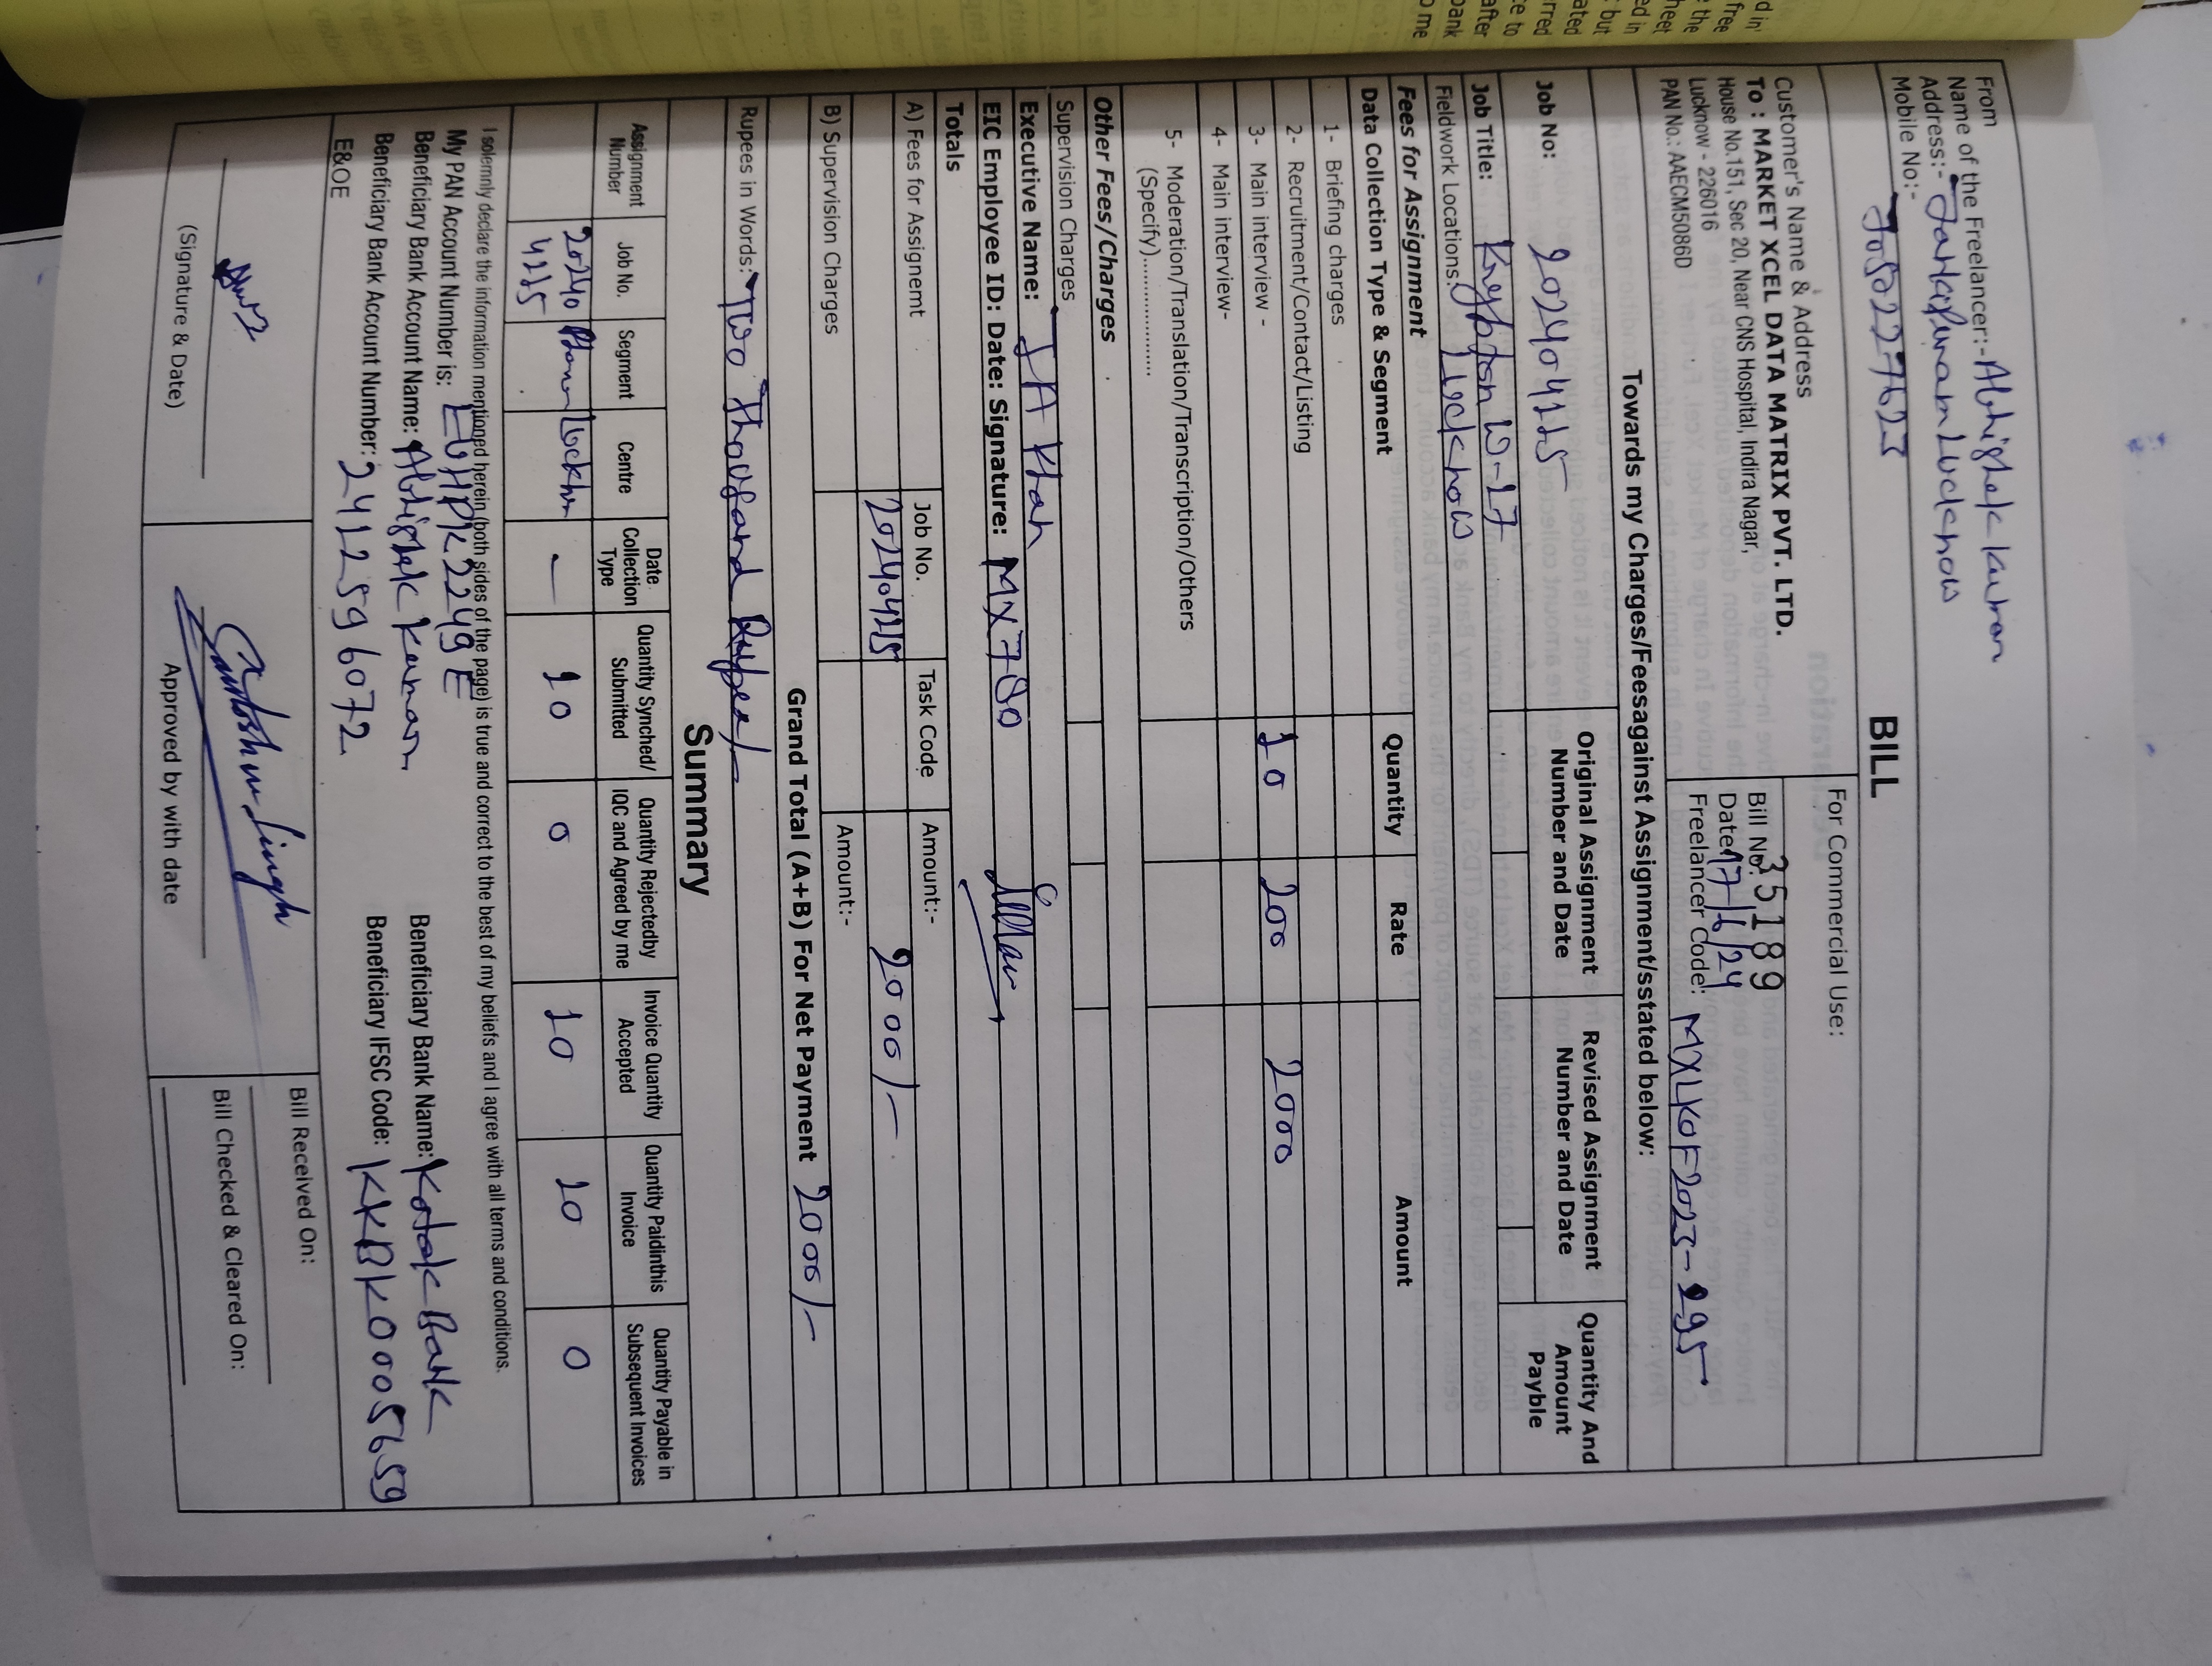 From
Name of the Freelancer:- Abhishek Kumar
Address:- Jankipuram Lucknow
Mobile No:-
BILL
Customer's Name & Address
To : MARKET XCEL DATA MATRIX PVT. LTD.
House No.151, Sec 20, Near CNS Hospital, Indira Nagar,
Lucknow - 226016
PAN No.: AAECM5086D
For Commercial Use:
Bill No. 35189
Date 17/6/24
Freelancer Code: MXLKOF2023-295
Towards my Charges/Feesagainst Assignment/sstated below:
Original Assignment Number and Date
Revised Assignment Number and Date
Quantity And Amount Payble
Job No: 202404115
Job Title: Krypton W-17
Fieldwork Locations: Lucknow
Fees for Assignment
Data Collection Type & Segment Quantity Rate Amount
1- Briefing charges
2- Recruitment/Contact/Listing
3- Main interview - 10 200 2000
4- Main interview-
5- Moderation/Translation/Transcription/Others
(Specify)...............
Other Fees/Charges
Supervision Charges
Executive Name: JA Khan
EIC Employee ID: Date: Signature: MX780
Totals
A) Fees for Assignemt Job No. Task Code Amount:-
2000/-
B) Supervision Charges Amount:-
Grand Total (A+B) For Net Payment 2000/-
Rupees in Words: Two Thousand Rupee/-
Summary
Assignment Number Job No. Segment Centre Date Collection Type Quantity Synched/ Submitted Quantity Rejectedby IQC and Agreed by me Invoice Quantity Accepted Quantity Paidinthis Invoice Quantity Payable in Subsequent Invoices
- 10 0 10 10 0
I solemnly declare the information mentioned herein (both sides of the page) is true and correct to the best of my beliefs and I agree with all terms and conditions.
My PAN Account Number is:
Beneficiary Bank Account Name: Abhishek Kumar Beneficiary Bank Name: Kotak Bank
Beneficiary Bank Account Number: 2412596072 Beneficiary IFSC Code: KKBK0005659
E&OE
(Signature & Date)
Approved by with date
Bill Received On:
Bill Checked & Cleared On: